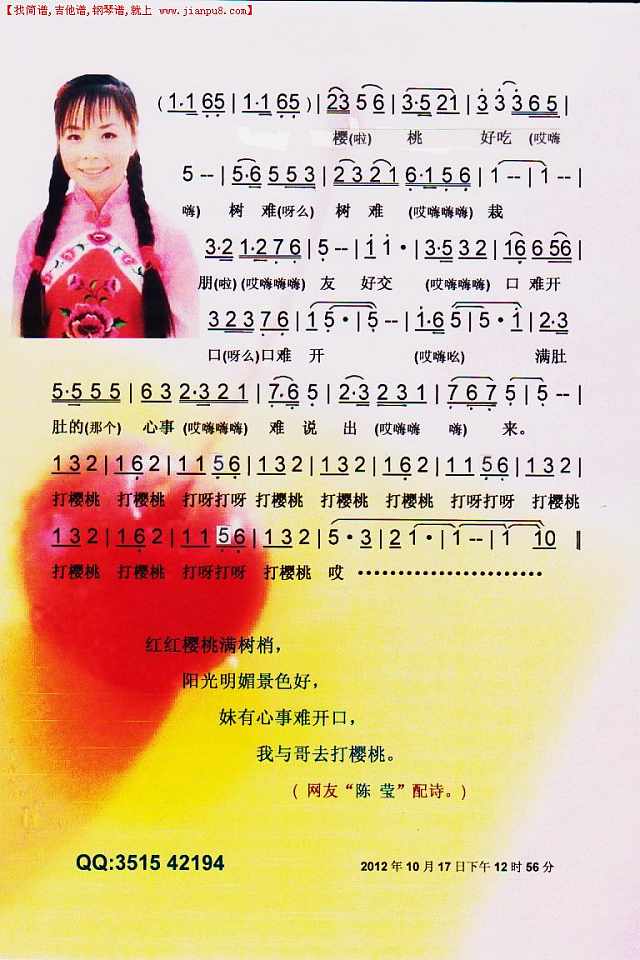 【找简谱,吉他谱,钢琴谱,就上 www.jianpu8.com】
( 1·1 65 | 1·1 65 ) | 23 5 6 | 3·5 21 | 3 3 3 6 5 |
樱(啦) 桃 好吃 (哎嗨
5 -- | 5·6 5 5 3 | 2 3 2 1 6·1 5 6 | 1 -- | 1 -- |
嗨) 树 难(呀么) 树 难 (哎嗨嗨嗨) 栽
3·2 1·2 7 6 | 5 -- | 1 1 · | 3·5 3 2 | 1 6 6 56 |
朋(啦) (哎嗨嗨嗨) 友 好交 (哎嗨嗨嗨) 口 难开
3 2 3 7 6 | 1 5 · | 5 -- | 1·6 5 | 5 · 1 | 2·3
口(呀么)口难 开 (哎嗨吆) 满肚
5·5 5 5 | 6 3 2·3 2 1 | 7·6 5 | 2·3 2 3 1 | 7 6 7 5 | 5 -- |
肚的(那个) 心事 (哎嗨嗨嗨) 难 说 出 (哎嗨嗨 嗨) 来。
1 3 2 | 1 6 2 | 1 1 5 6 | 1 3 2 | 1 3 2 | 1 6 2 | 1 1 5 6 | 1 3 2 |
打樱桃 打樱桃 打呀打呀 打樱桃 打樱桃 打樱桃 打呀打呀 打樱桃
1 3 2 | 1 6 2 | 1 1 5 6 | 1 3 2 | 5 · 3 | 2 1 · | 1 -- | 1 10 ‖
打樱桃 打樱桃 打呀打呀 打樱桃 哎 ························
红红樱桃满树梢，
阳光明媚景色好，
妹有心事难开口，
我与哥去打樱桃。
( 网友“陈 莹”配诗。)
QQ:3515 42194
2012 年 10 月 17 日下午 12 时 56 分